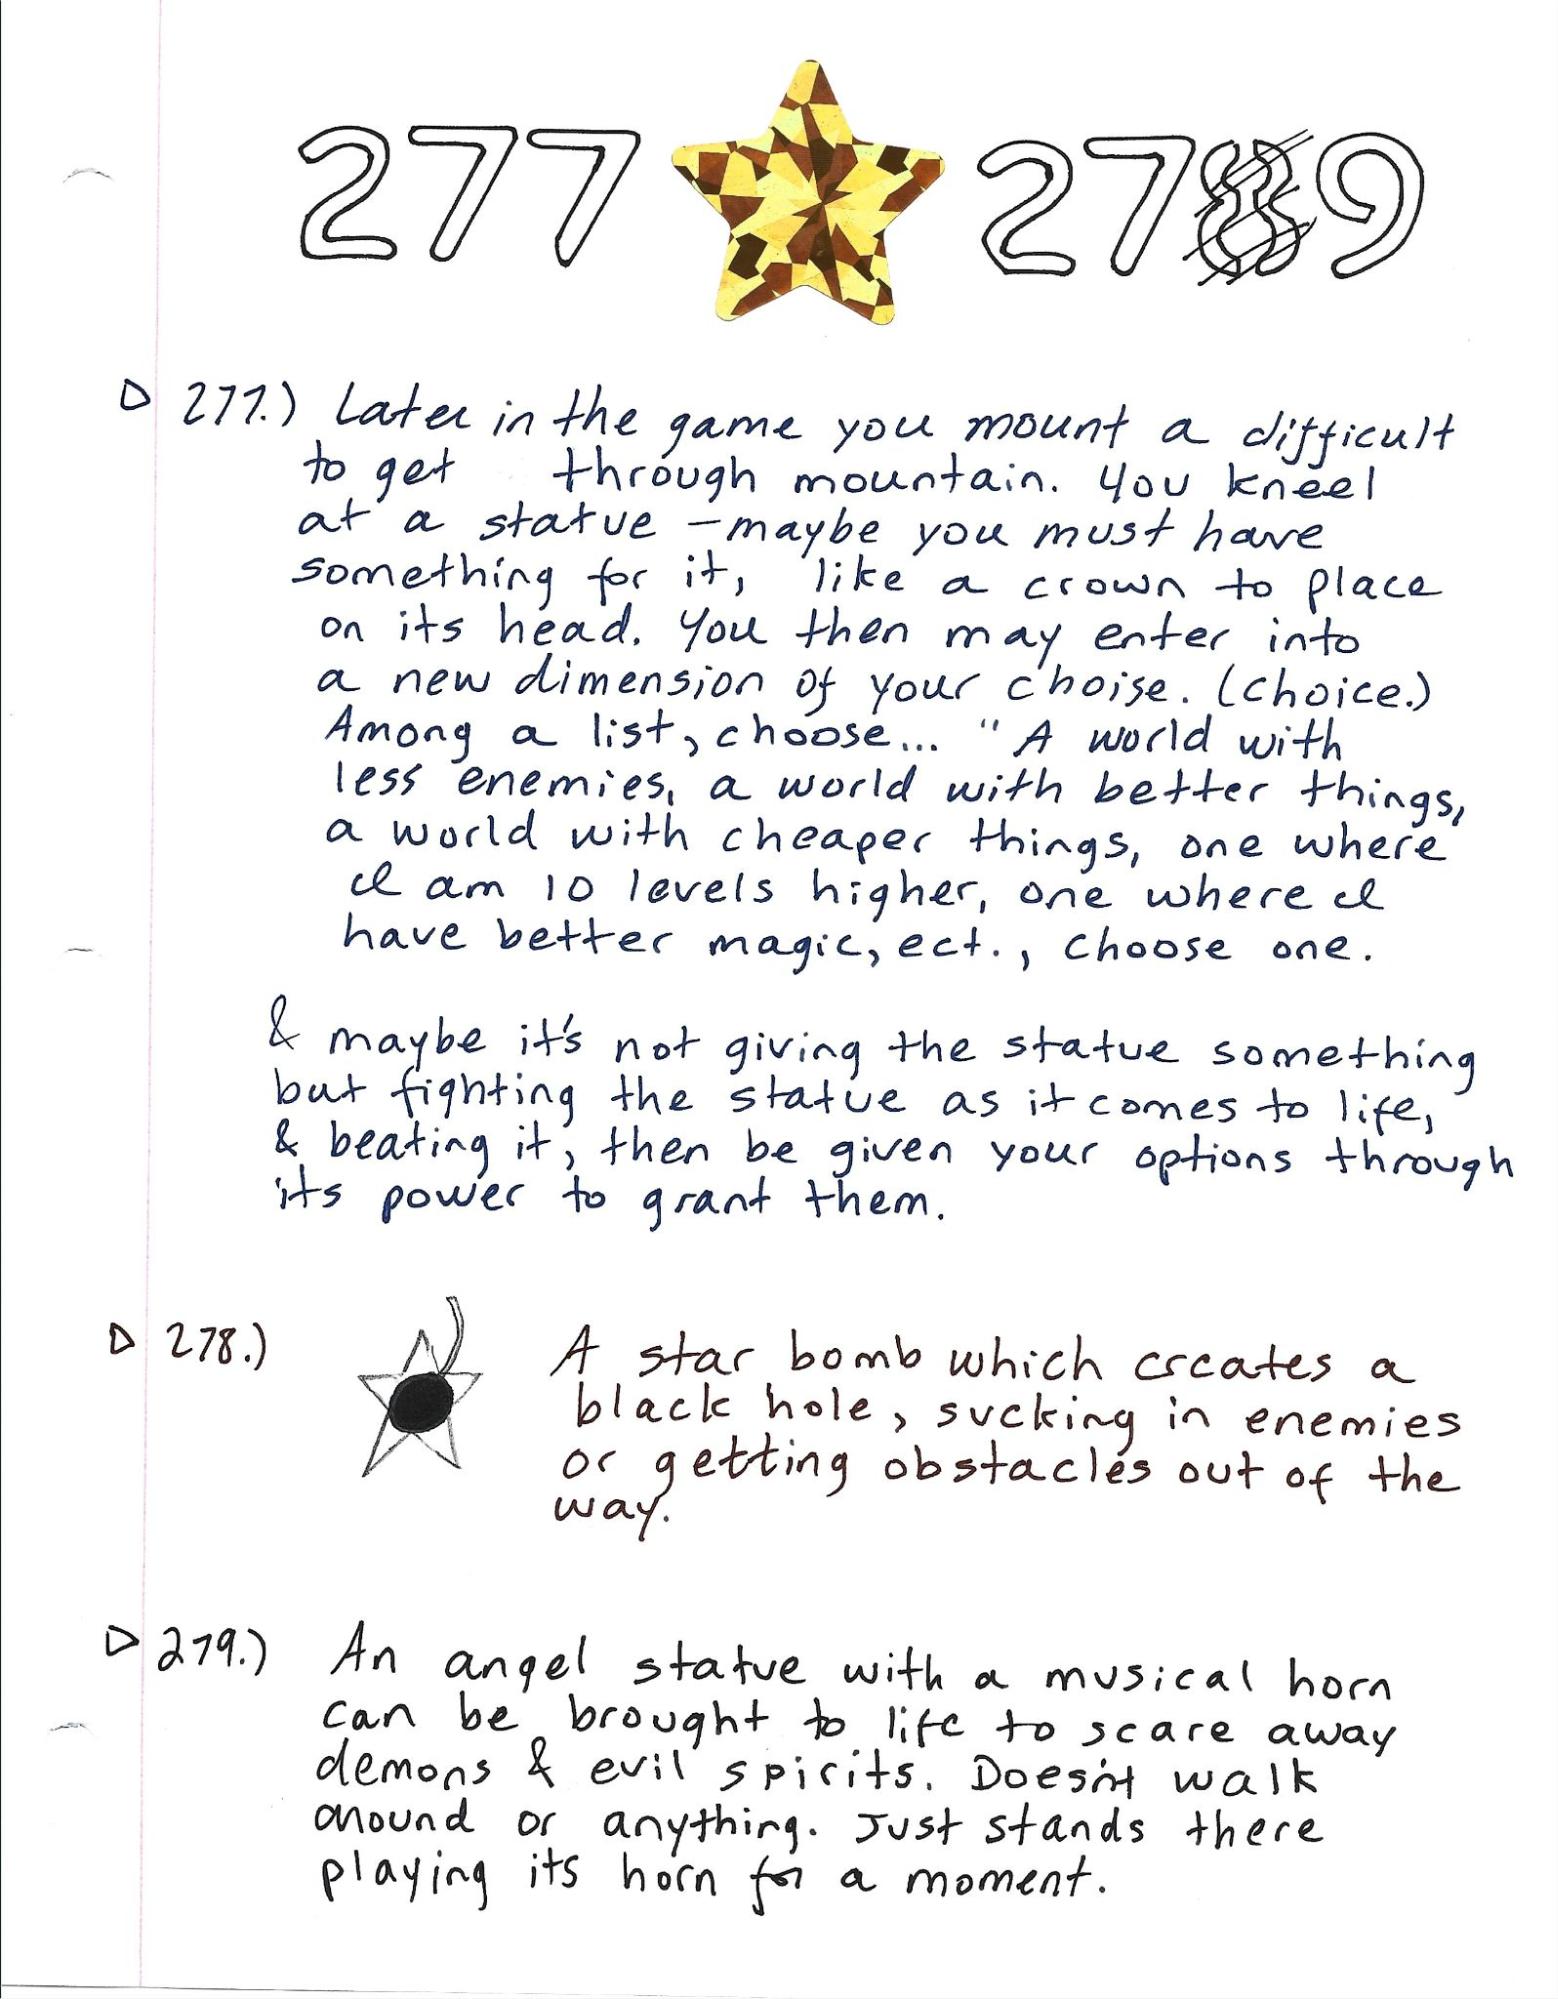 277 279
277.) Later in the game you mount a difficult
to get through mountain. You kneel
at a statue - maybe you must have
something for it, like a crown to place
on its head. You then may enter into
a new dimension of your choise. (choice.)
Among a list, choose... "A world with
less enemies, a world with better things,
a world with cheaper things, one where
I am 10 levels higher, one where I
have better magic, ect., choose one.
& maybe it's not giving the statue something
but fighting the statue as it comes to life,
& beating it, then be given your options through
its power to grant them.
278.) A star bomb which creates a
black hole, sucking in enemies
or getting obstacles out of the
way.
279.) An angel statue with a musical horn
can be brought to life to scare away
demons & evil spirits. Doesn't walk
around or anything. Just stands there
playing its horn for a moment.